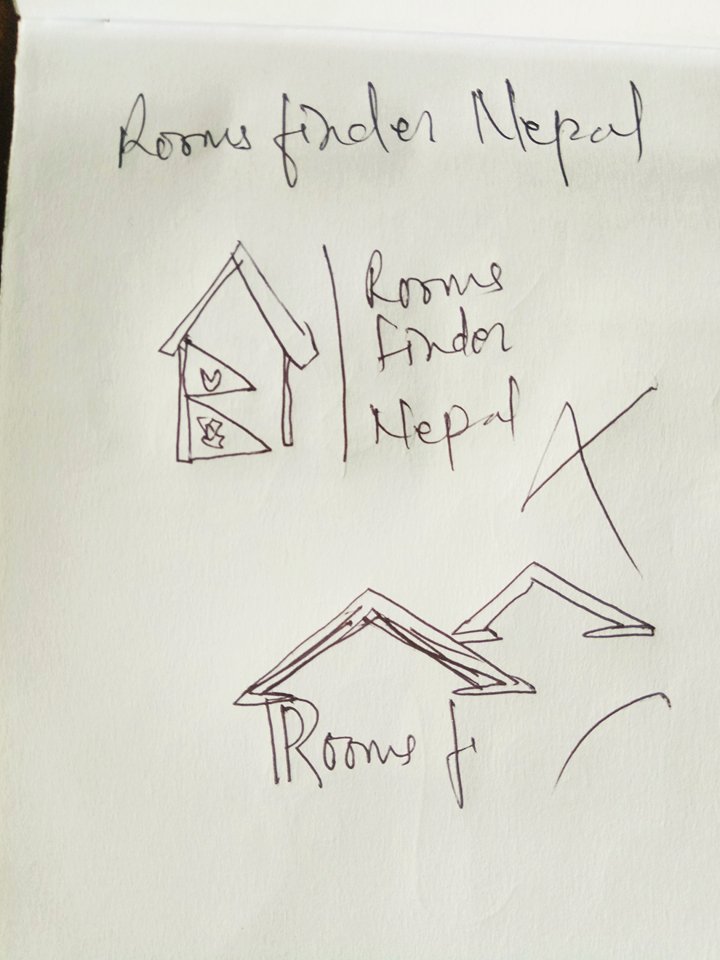 Rooms finder Nepal
Rooms
Finder
Nepal
Rooms f